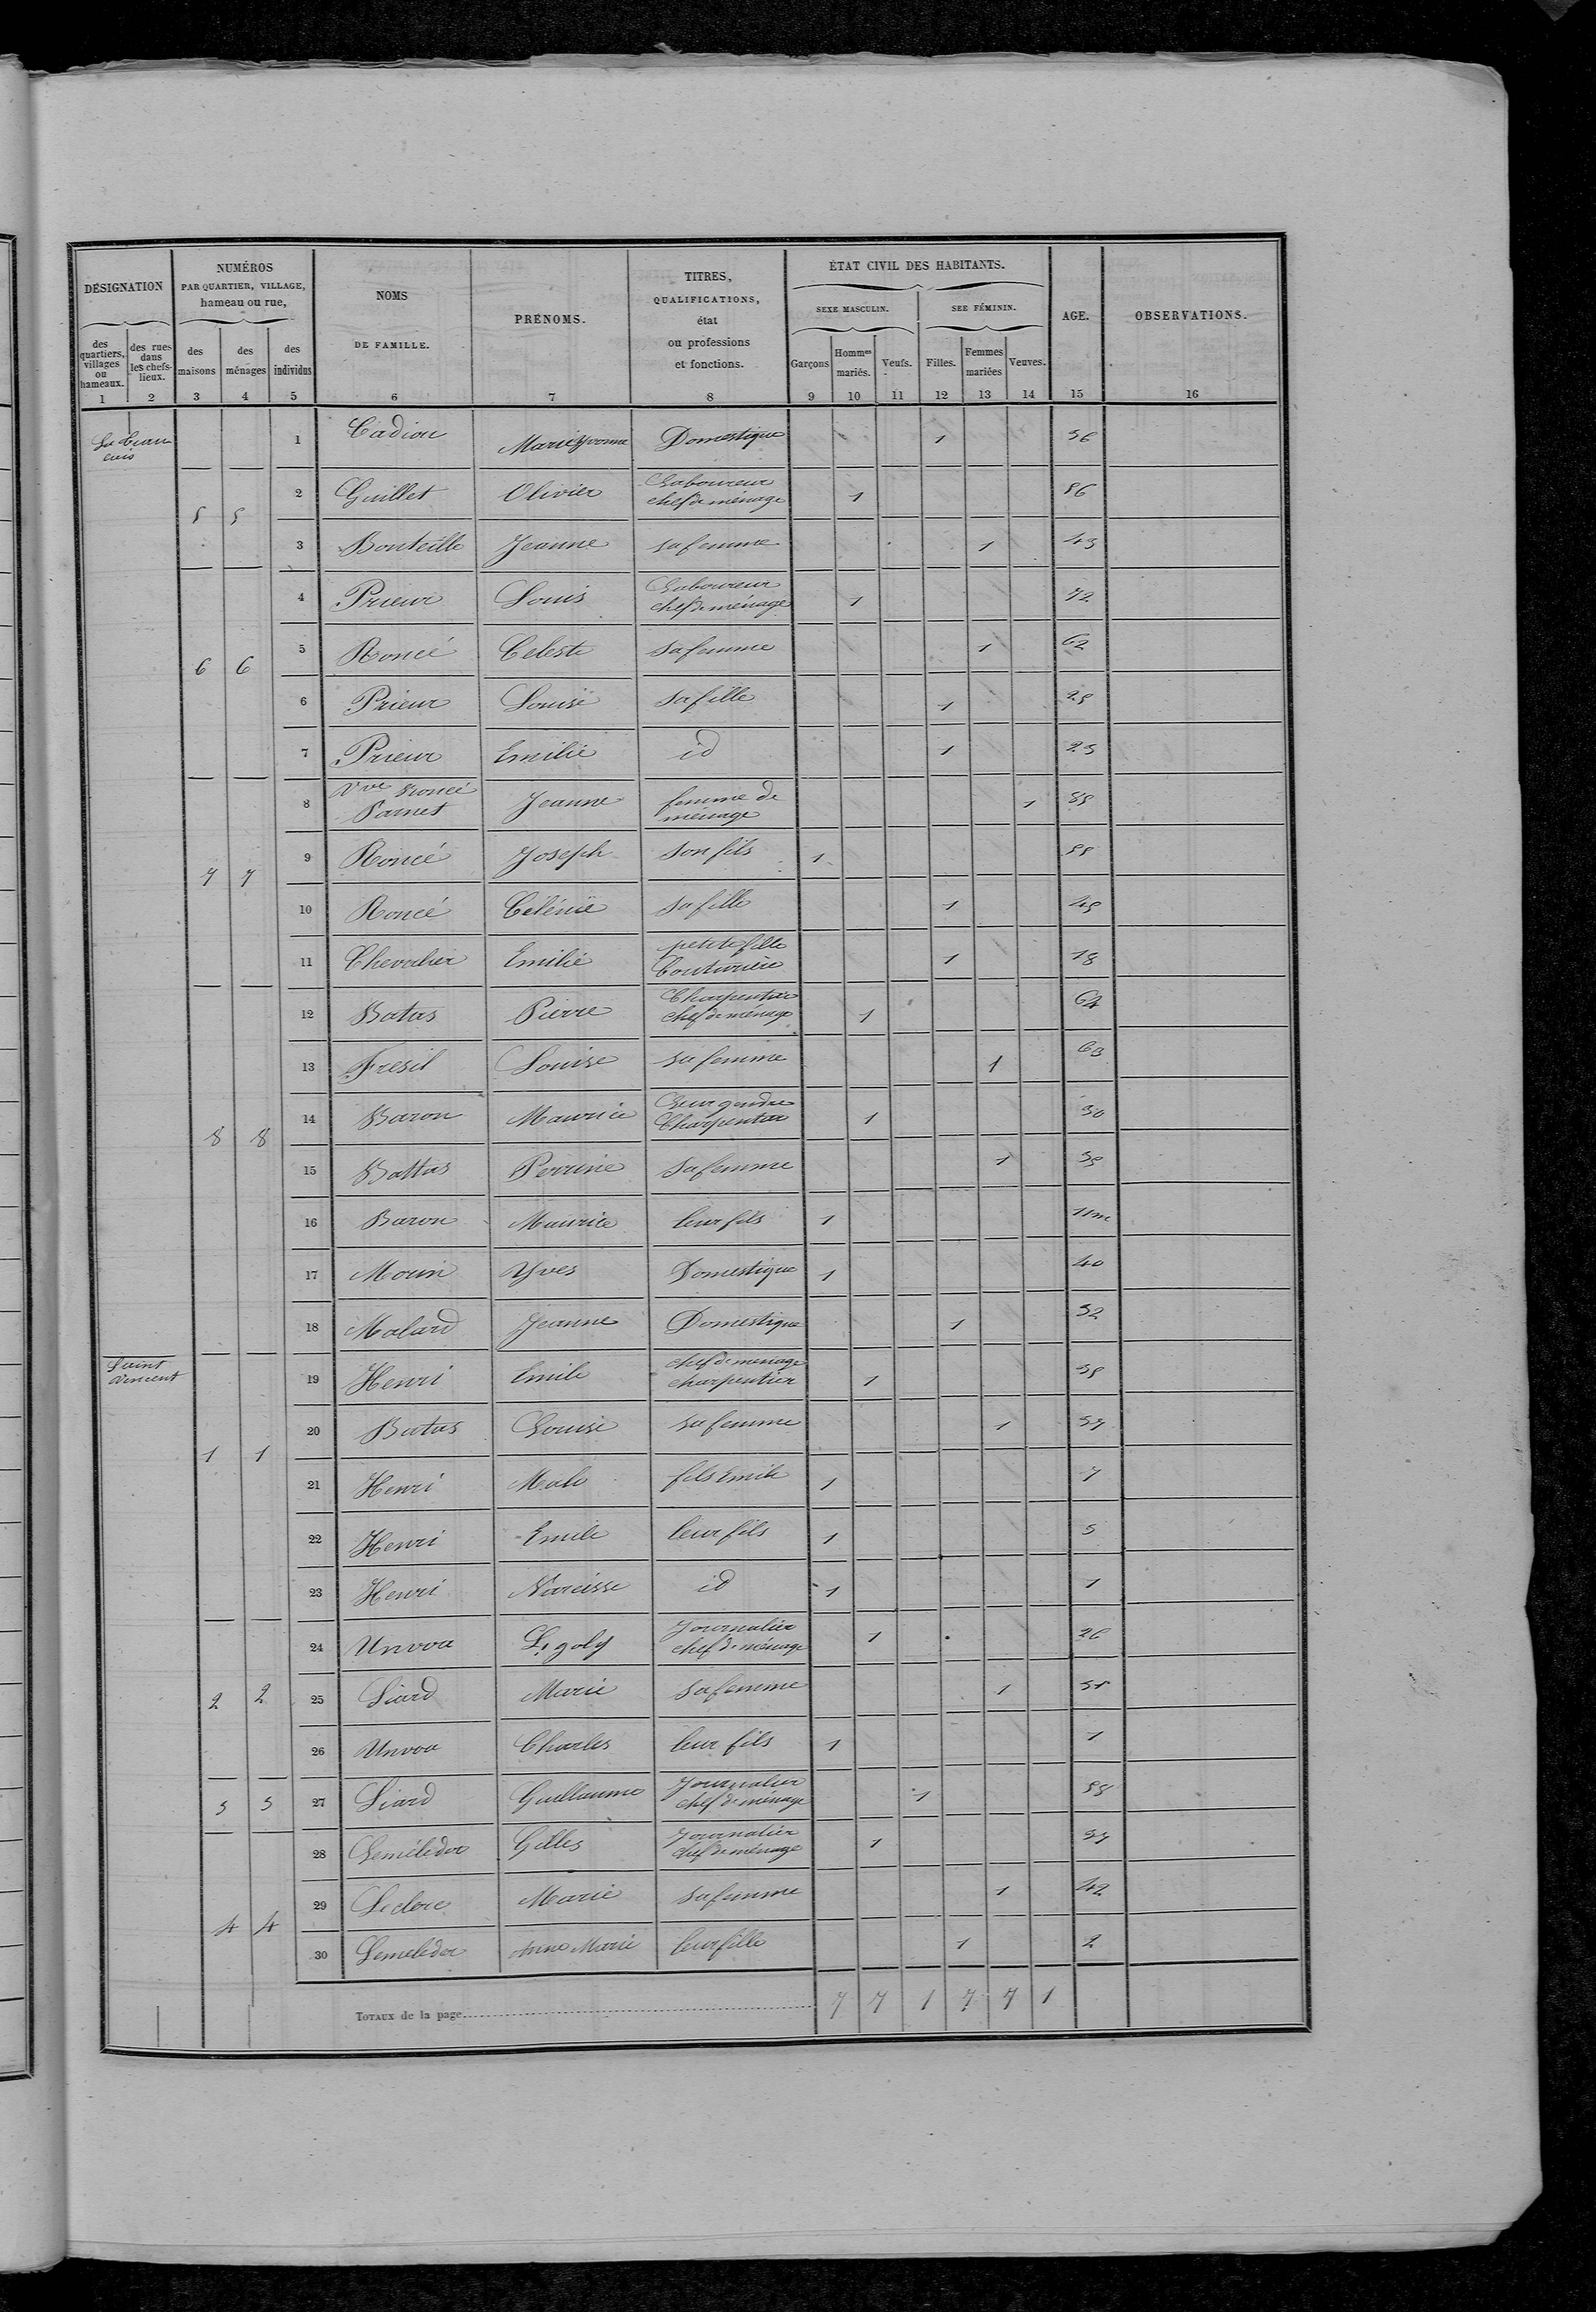 DÉSIGNATION
NUMÉROS
PAR QUARTIER, VILLAGE,
hameau ou rue,
NOMS
DE FAMILLE.
PRÉNOMS.
TITRES,
QUALIFICATIONS,
état
ou professions
et fonctions.
ÉTAT CIVIL DES HABITANTS.
SEXE MASCULIN. SEE FÉMININ.
AGE.
OBSERVATIONS.
des quartiers, villages ou hameaux. des rues dans les chefs-lieux. des maisons des ménages des individus Garçons Hommes mariés. Veufs. Filles. Femmes mariées Veuves.
1 2 3 4 5 6 7 8 9 10 11 12 13 14 15 16
1 Cadiou Marie Yvonne Domestique 1 36
5 5
2 Guillet Olivier Laboureur chef de ménage 1 56
3 Bouteille Jeanne sa femme 1 43
6 6
4 Prieur Louis Laboureur chef de ménage 1 72
5 Roncé Celeste sa femme 1 62
6 Prieur Louise sa fille 1 25
7 Prieur Emilie id 1 23
7 7
8 Vve Roncé Jeanne femme de ménage 1 85
9 Roncé Joseph son fils 1 55
10 Roncé Célénie sa fille 1 45
11 Chevalier Emilie petite fille Couturière 1 18
8 8
12 Batas Pierre Charpentier chef de ménage 1 64
13 Fresil Louise sa femme 1 63
14 Baron Maurice Leur gendre Charpentier 1 30
15 Battas Perrine sa femme 1 35
16 Baron Maurice leur fils 1 11m
17 Morin Yves Domestique 1 40
18 Malard Jeanne Domestique 1 32
Saint Vincent
1 1
19 Henri Emile chef de ménage charpentier 1 35
20 Batas Louise sa femme 1 37
21 Henri fils Emile 1 7
22 Henri Emile leur fils 1 5
23 Henri Narcisse id 1 1
2 2
24 Unvoa Journalier chef de ménage 1 26
25 Liard Marie sa femme 1 31
26 Unvoa Charles leur fils 1 1
3 3
27 Liard Guillaume Journalier chef de ménage 1 58
4 4
28 Lemélédor Gilles Journalier chef de ménage 1 37
29 Leclerc Marie sa femme 1 42
30 Lemeledor Anne Marie leur fille 1 2
TOTAUX de la page 7 7 1 7 7 1